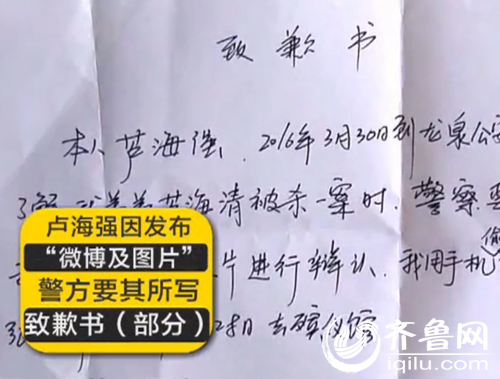 致歉书
本人芦海强，2016年3月30日到龙泉公安
了解 芦海清被杀一案时，警察
卢海强因发布
“微博及图片”
警方要其所写
致歉书（部分）
片进行辩认，我用手机偷
28日去殡仪馆
齐鲁网
iqilu.com